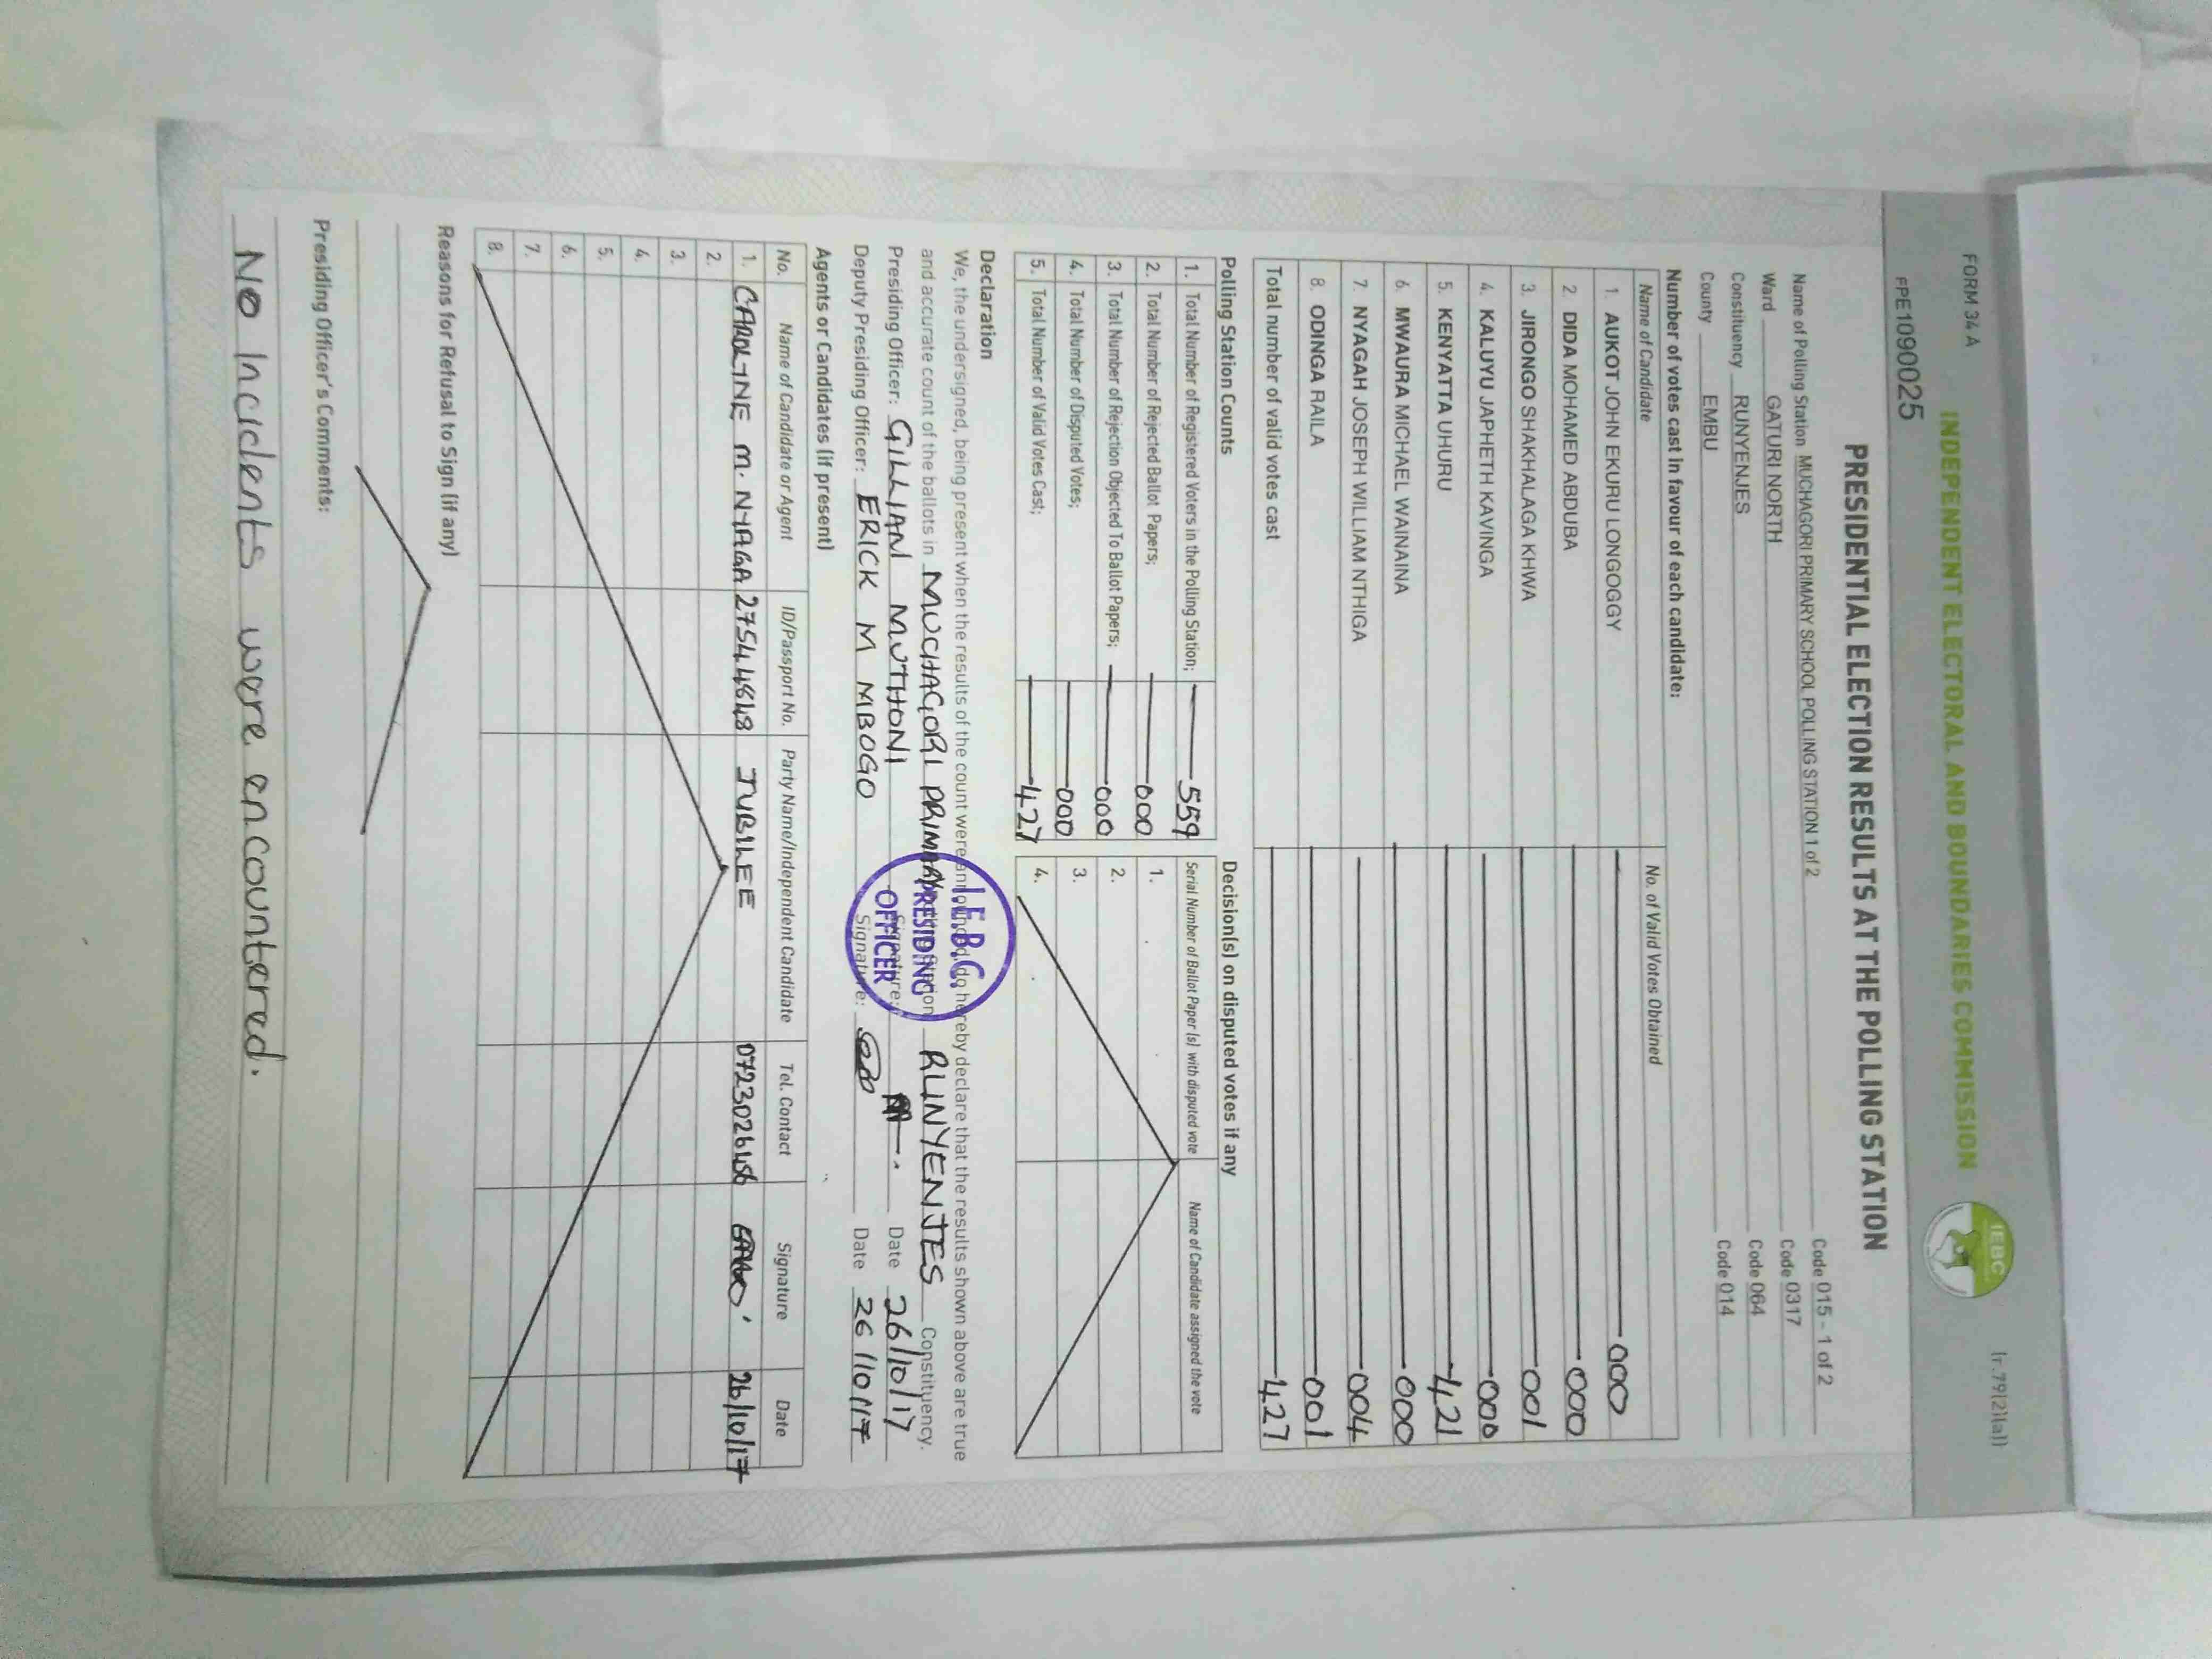 FORM 34 A
(r.79(2)(a))
INDEPENDENT ELECTORAL AND BOUNDARIES COMMISSION
IEBC
FPE1090025
PRESIDENTIAL ELECTION RESULTS AT THE POLLING STATION
Name of Polling Station MUCHAGORI PRIMARY SCHOOL POLLING STATION 1 of 2 Code 015 - 1 of 2
Ward GATURI NORTH Code 0317
Constituency RUNYENJES Code 064
County EMBU Code 014
Number of votes cast in favour of each candidate:
Name of Candidate No. of Valid Votes Obtained
1. AUKOT JOHN EKURU LONGOGGY 000
2. DIDA MOHAMED ABDUBA 000
3. JIRONGO SHAKHALAGA KHWA 001
4. KALUYU JAPHETH KAVINGA 000
5. KENYATTA UHURU 421
6. MWAURA MICHAEL WAINAINA 000
7. NYAGAH JOSEPH WILLIAM NTHIGA 004
8. ODINGA RAILA 001
Total number of valid votes cast 427
Polling Station Counts
1. Total Number of Registered Voters in the Polling Station; 559
2. Total Number of Rejected Ballot Papers; 000
3. Total Number of Rejection Objected To Ballot Papers; 000
4. Total Number of Disputed Votes; 000
5. Total Number of Valid Votes Cast; 427
Decision(s) on disputed votes if any
Serial Number of Ballot Paper (s) with disputed vote Name of Candidate assigned the vote
1.
2.
3.
4.
Declaration
We, the undersigned, being present when the results of the count were announced, do hereby declare that the results shown above are true
and accurate count of the ballots in MUCHAGORI PRIMARY Polling Station RUNYENJES Constituency.
Presiding Officer: GILLIAN MUTHONI Signature: Date 26/10/17
Deputy Presiding Officer: ERICK M MBOGO Signature: Date 26/10/17
I.E.B.C.
PRESIDING
OFFICER
Agents or Candidates (if present)
No. Name of Candidate or Agent ID/Passport No. Party Name/Independent Candidate Tel. Contact Signature Date
1. CAROLINE M. NYAGA 27544848 JUBILEE 26/10/17
2.
3.
4.
5.
6.
7.
8.
Reasons for Refusal to Sign (if any)
Presiding Officer's Comments:
No Incidents were encountered.